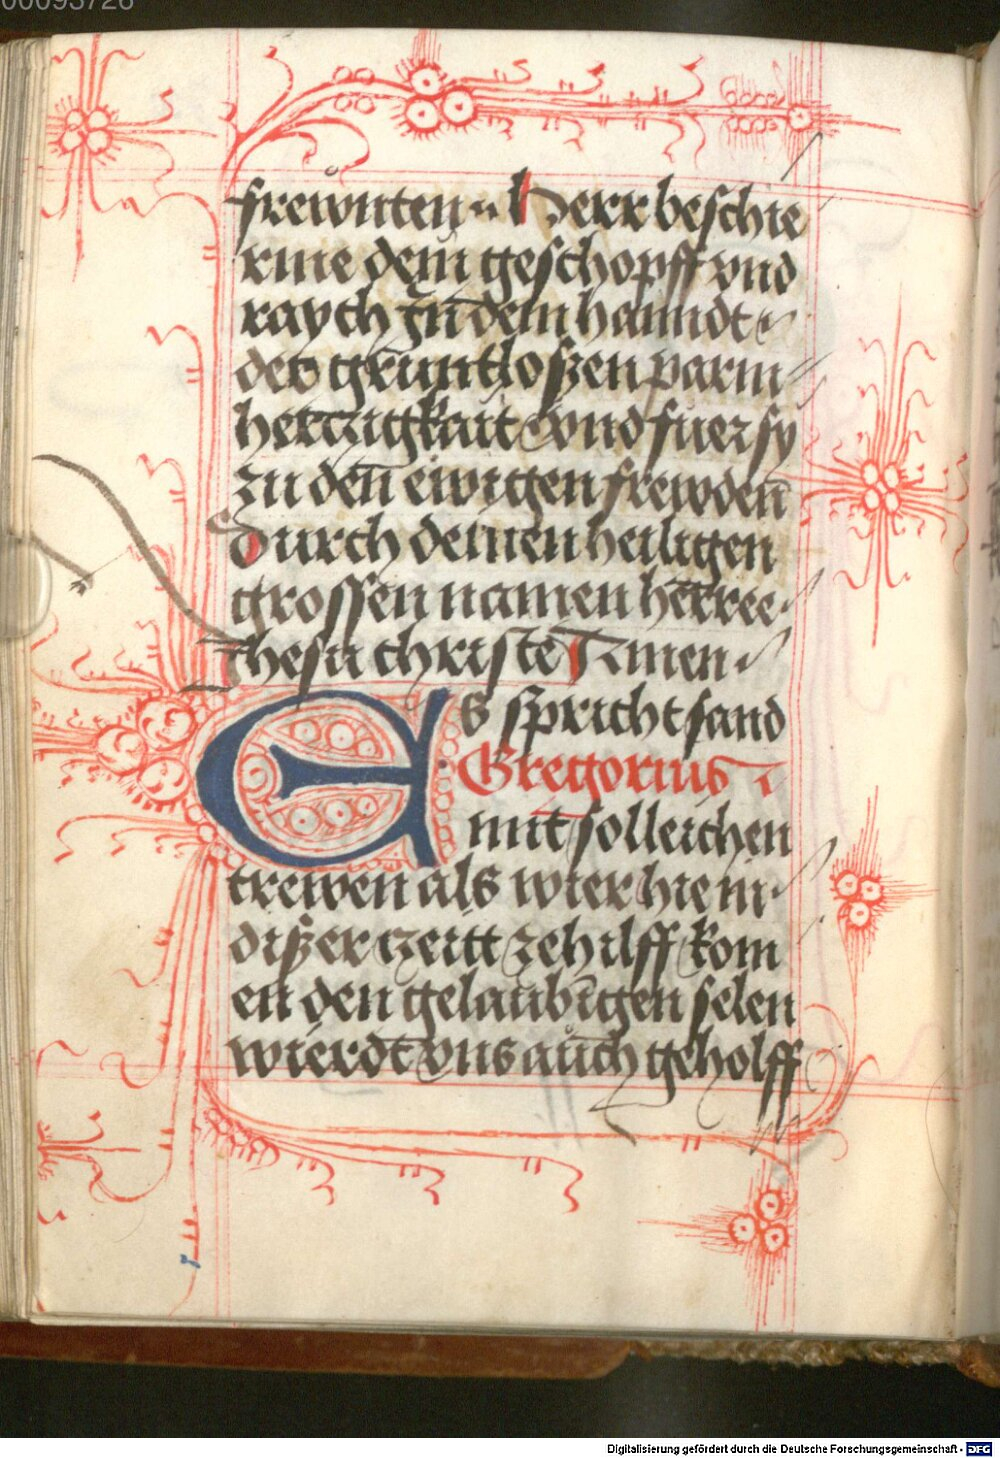 00093726
frewnten Herr beschie
rme dein geschopff vnd
raych zu dein hanndt
der gruntloszen parm
hertzigkait vnd fuer sy
zu den ewigen frewden
durch deinen heiligen
grossen namen herree
ihesu christe Amen
Es spricht sand
Gregorius
mit solleichen
trewen als wier hie in
diszer czeitt ze hilff kom
en den gelaubigen selen
wierdt vns auch geholff
Digitalisierung gefördert durch die Deutsche Forschungsgemeinschaft - DFG